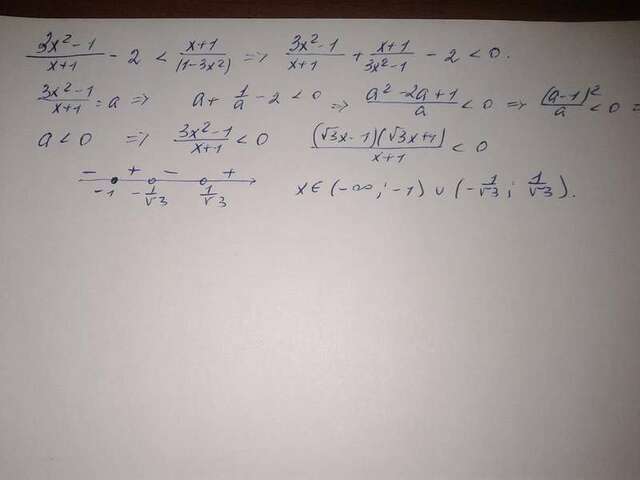 (3x²-1)/(x+1) - 2 < (x+1)/(1-3x²) => (3x²-1)/(x+1) + (x+1)/(3x²-1) - 2 < 0.
(3x²-1)/(x+1) = a => a + 1/a - 2 < 0 => (a²-2a+1)/a < 0 => (a-1)²/a < 0 =
a < 0 => (3x²-1)/(x+1) < 0 (√3x-1)(√3x+1)/(x+1) < 0
- + - +
-1 -1/√3 1/√3 x∈(-∞; -1) ∪ (-1/√3; 1/√3).